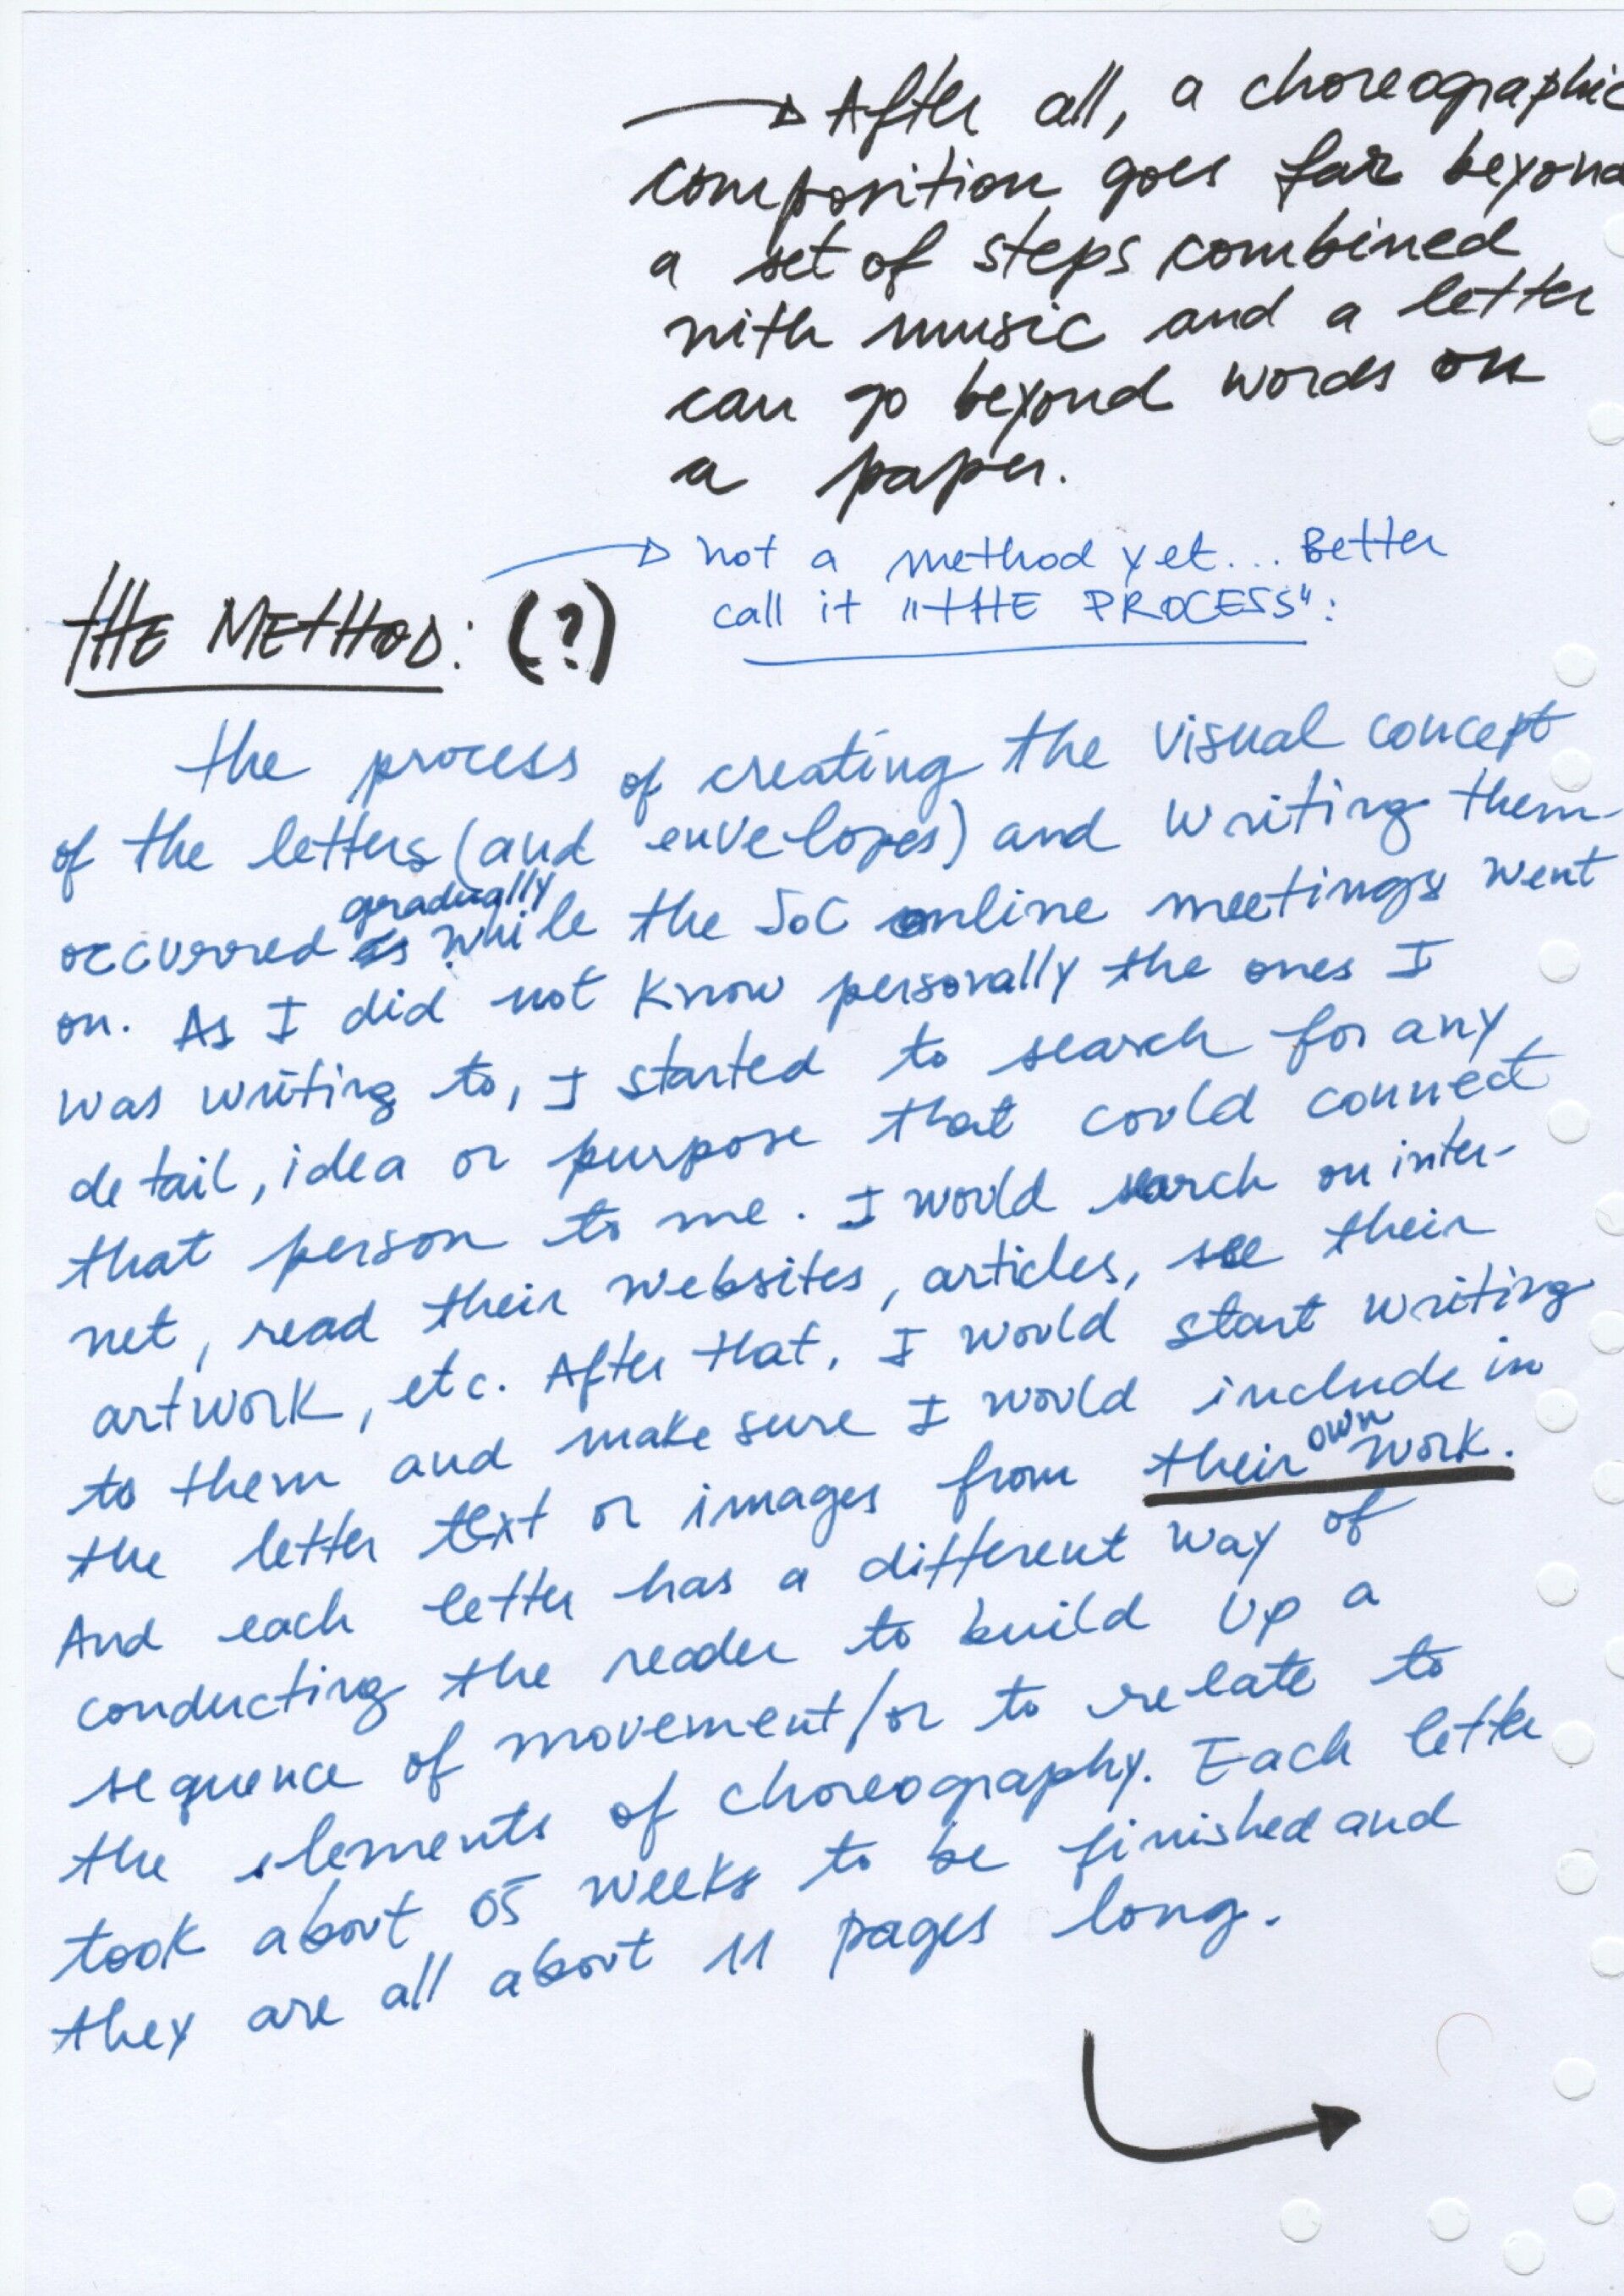 After all, a choreographic
composition goes far beyond
a set of steps combined
with music and a letter
can go beyond words on
a paper.
not a method yet... Better
call it "THE PROCESS":
THE METHOD: (?)
the process of creating the visual concept
of the letters (and envelopes) and writing them
occurred as gradually while the SoC online meetings went
on. As I did not know personally the ones I
was writing to, I started to search for any
detail, idea or purpose that could connect
that person to me. I would search on inter-
net, read their websites, articles, see their
artwork, etc. After that, I would start writing
to them and make sure I would include in
the letter text or images from their own work.
And each letter has a different way of
conducting the reader to build up a
sequence of movement/or to relate to
the elements of choreography. Each letter
took about 05 weeks to be finished and
they are all about 11 pages long.